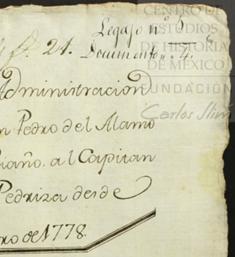 CENTRO DE
ESTUDIOS
DE HISTORIA
DE MÉXICO
FUNDACIÓN
Carlos Slim
Legajo nº 5
21. Documento nº 4.
Administracion
n Pedro del Alamo
iaño. al Capitan
Pedriza desde
ro de 1778.